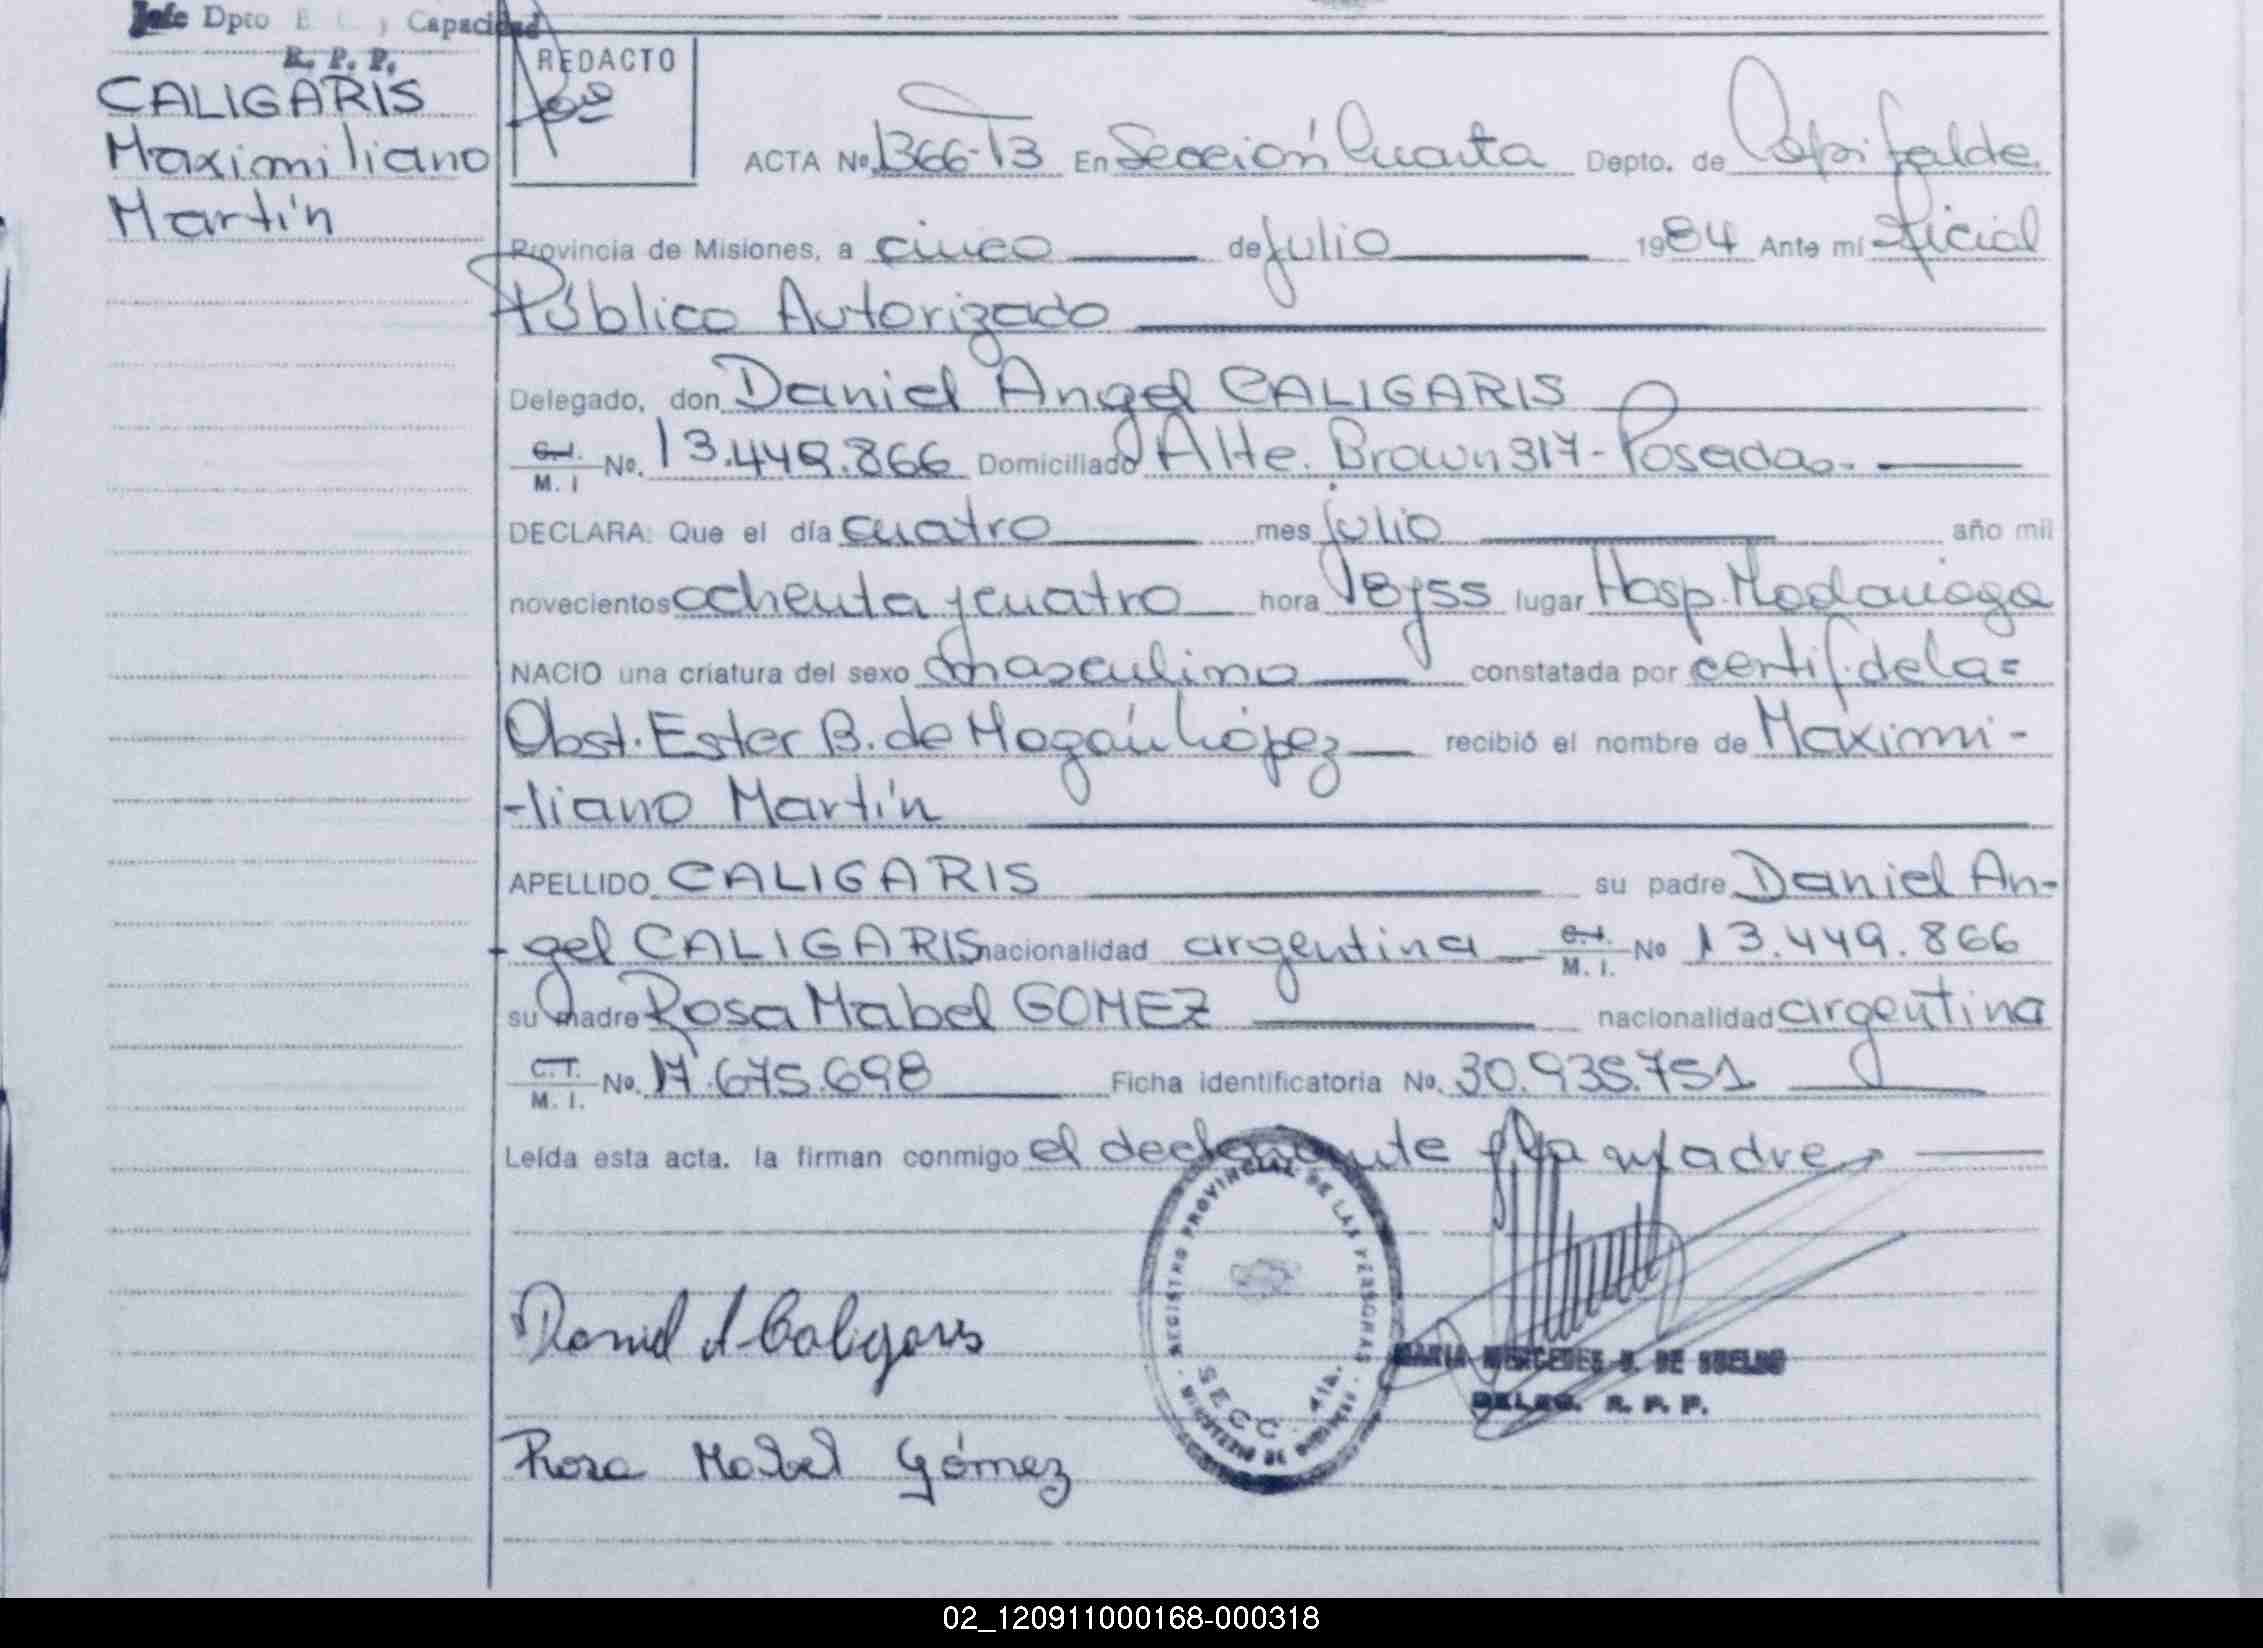 Jefe Dpto E. C. y Capacidad
R. P. P.
CALIGARIS
Maximiliano
Martín
REDACTO
ACTA Nº 1366-T3 En Sección Cuarta Depto. de Capital de
Provincia de Misiones, a cinco de julio 1984 Ante mí Oficial
Público Autorizado
Delegado, don Daniel Angel CALIGARIS
C.I. M. I Nº. 13.449.866 Domiciliado Alte. Brown 317-Posadas.-
DECLARA: Que el día cuatro mes julio año mil
novecientos ochenta y cuatro hora 18y55 lugar Hosp. Madariaga
NACIO una criatura del sexo masculino constatada por certif. de la=
Obst. Ester B. de López recibió el nombre de Maximi-
-liano Martín
APELLIDO CALIGARIS su padre Daniel An-
-gel CALIGARIS nacionalidad argentina C.I. M. I. Nº 13.449.866
su madre Rosa Mabel GOMEZ nacionalidad argentina
C.I. M. I. Nº. 17.675.698 Ficha identificatoria Nº. 30.935.751
Leída esta acta, la firman conmigo el declarante y la madre
Daniel A Caligaris
Rosa Mabel Gómez
REGISTRO PROVINCIAL DE LAS PERSONAS
SECC. 4ta.
MINISTERIO DE GOBIERNO
MARIA MERCEDES DE
DELEG. R. P. P.
02_120911000168-000318